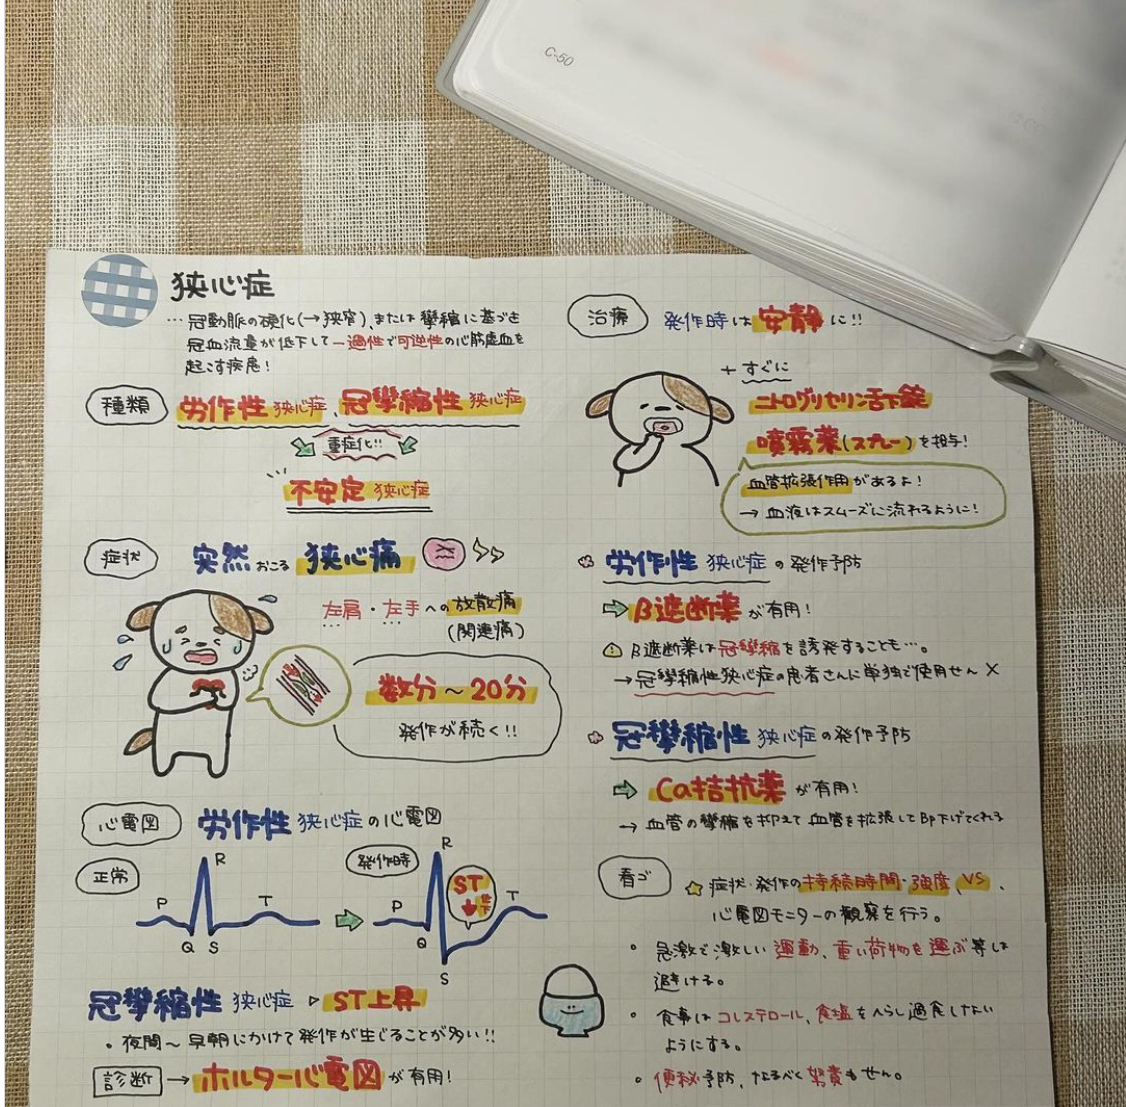 C-50
狭心症
… 冠動脈の硬化(→狭窄)、または攣縮に基づき
冠血流量が低下して一過性で可逆性の心筋虚血を
起こす疾患!
種類 労作性 狭心症、冠攣縮性 狭心症
重症化!!
不安定 狭心症
症状 突然 おこる 狭心痛
左肩・左手への放散痛
(関連痛)
数分〜20分
発作が続く!!
心電図 労作性 狭心症の心電図
正常 P Q R S T
発作時 P Q R S T
ST低下
冠攣縮性 狭心症 ▷ ST上昇
・夜間〜早朝にかけて発作が生じることが多い!!
診断 → ホルター心電図 が有用!
治療 発作時は 安静 に!!
+ すぐに
ニトログリセリン舌下錠
噴霧薬(スプレー)を投与!
血管拡張作用があるよ!
→ 血液はスムーズに流れるように!
労作性 狭心症 の 発作予防
⇨ β遮断薬 が有用!
⚠ β遮断薬は冠攣縮を誘発することも…。
→ 冠攣縮性狭心症の患者さんに単独で使用せん ×
冠攣縮性 狭心症 の発作予防
⇨ Ca拮抗薬 が有用!
→ 血管の攣縮を抑えて血管を拡張してBP下げてくれる
看ゴ ☆ 症状・発作の持続時間・強度、VS、
心電図モニターの観察を行う。
・ 急激で激しい運動、重い荷物を運ぶ等は
避ける。
・ 食事はコレステロール、食塩をへらし過食しない
ようにする。
・ 便秘予防、なるべく努責もせん。